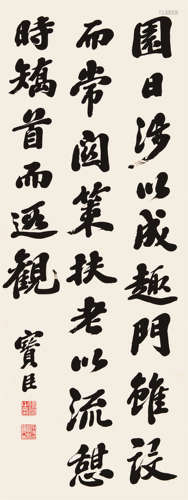 園日涉以成趣門雖設
而常関策扶老以流憩
時矯首而遐觀
寶臣